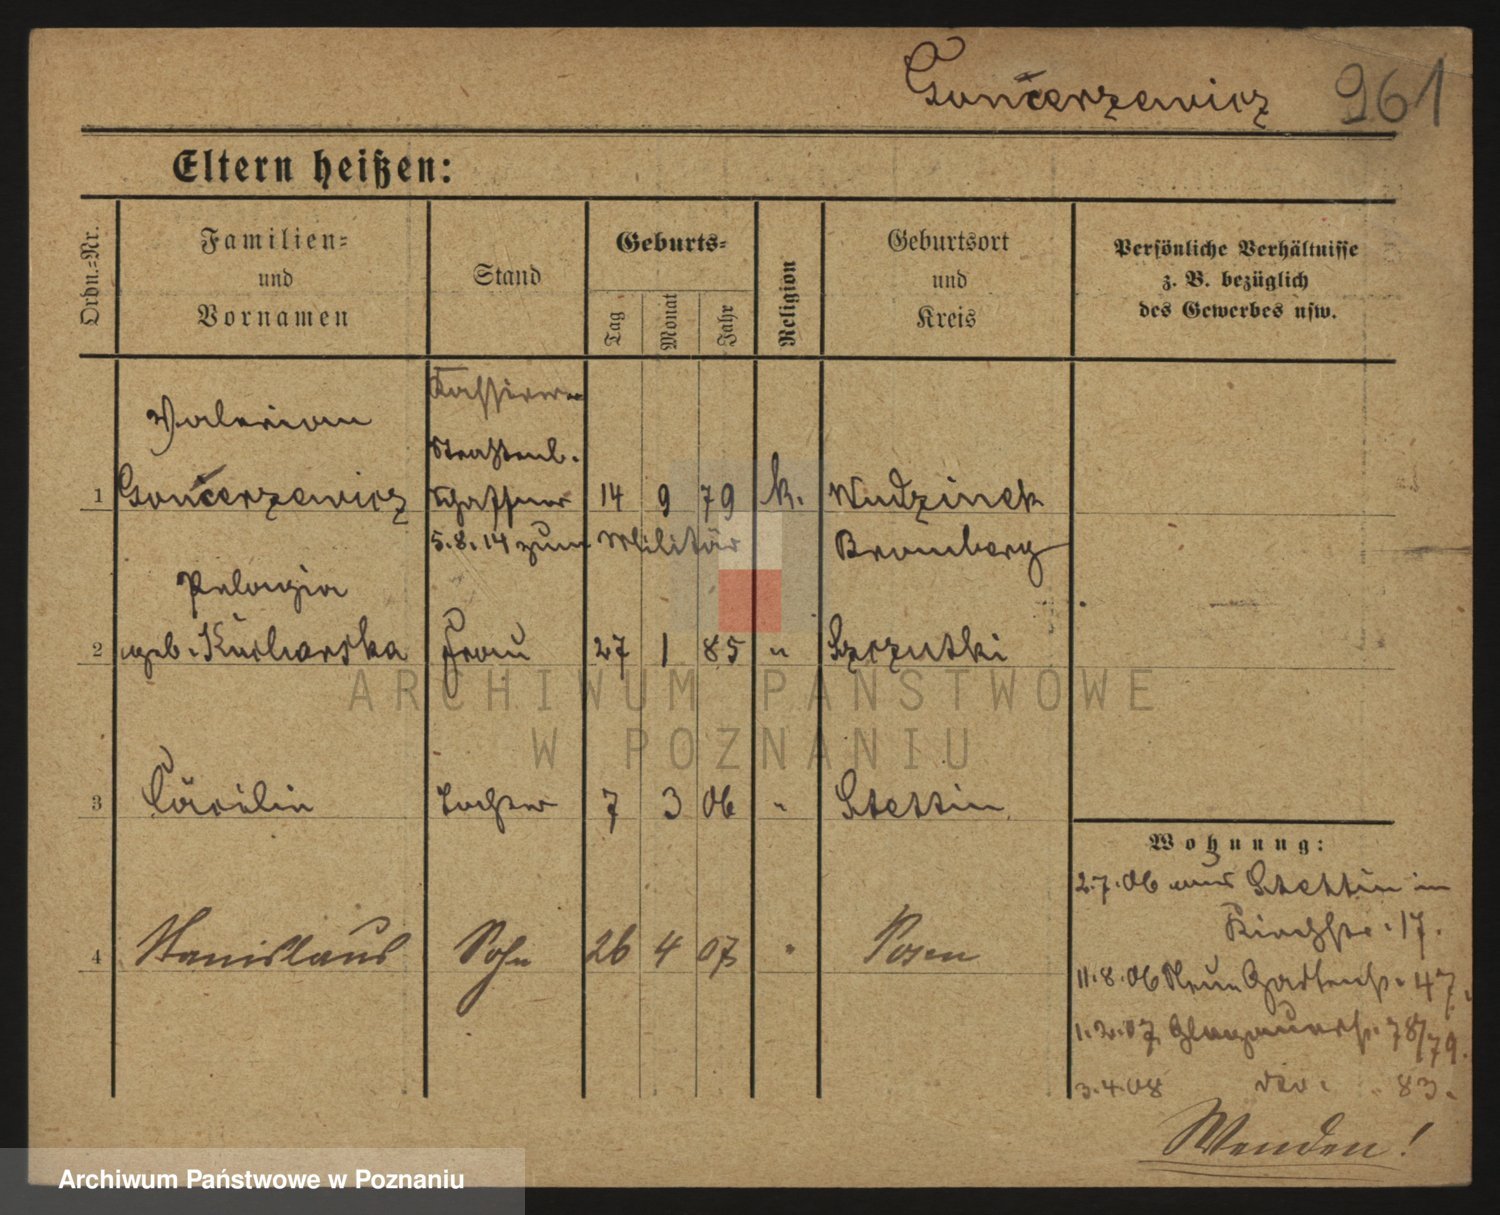 Gončerzewicz 961
Eltern heißen:
Ordn.-Nr.
Familien-
und
Vornamen
Stand
Geburts-
Tag
Monat
Jahr
Religion
Geburtsort
und
Kreis
Persönliche Verhältnisse
z. B. bezüglich
des Gewerbes usw.
Kassirer
Valerian
Straßenb.
1 Gončerzewicz Schaffner 14 9 79 k. Wudzinek
5.8.14 zum Militär Bromberg
Pelagia
2 geb. Kucharska Frau 27 1 85 " Szczutki
3 Cäcilie Tochter 7 3 06 " Stettin
Wohnung:
2.7.06 aus Stettin in
Kirchstr. 17.
4 Stanislaus Sohn 26 4 07 " Posen
11.8.06 Neue Gartenstr. 47.
1.2.07 Glogauerstr. 78/79.
3.4.08 dto. 83.
Wenden!
ARCHIWUM PAŃSTWOWE
W POZNANIU
Archiwum Państwowe w Poznaniu